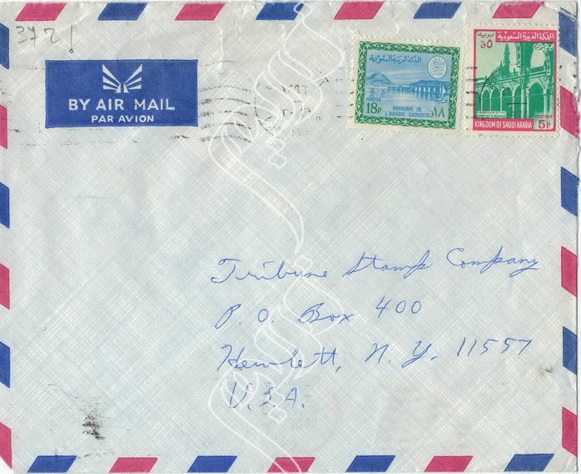 372!
BY AIR MAIL
PAR AVION
المملكة العربية السعودية
18P
ROYAUME DE
L'ARABIE SAOUDITE
١٨
المملكة العربية السعودية
KINGDOM OF SAUDI ARABIA
5P
Tribune Stamp Company
P. O. Box 400
Hewlett, N. Y. 11557
U.S.A.